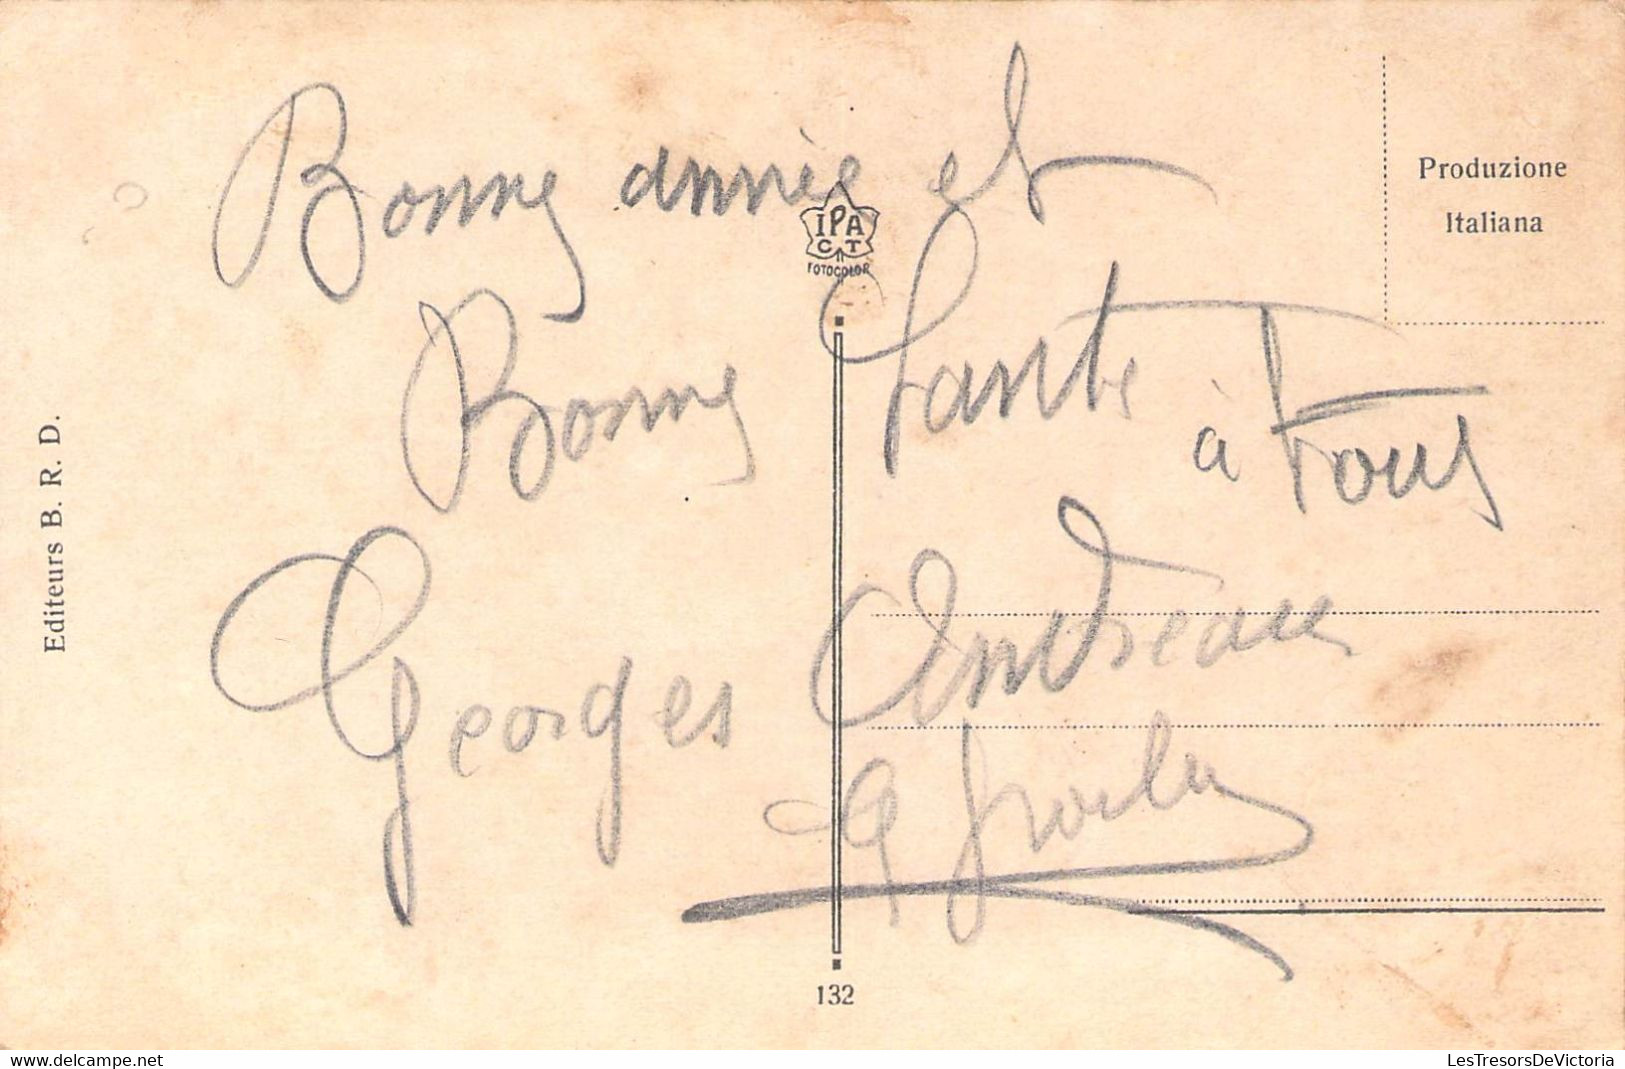 Bonne année et
Bonne Santé à Tous
Georges Andreau
Produzione
Italiana
IPA
CT
FOTOCOLOR
Editeurs B. R. D.
132
delcampe.net
LesTresorsDeVictoria